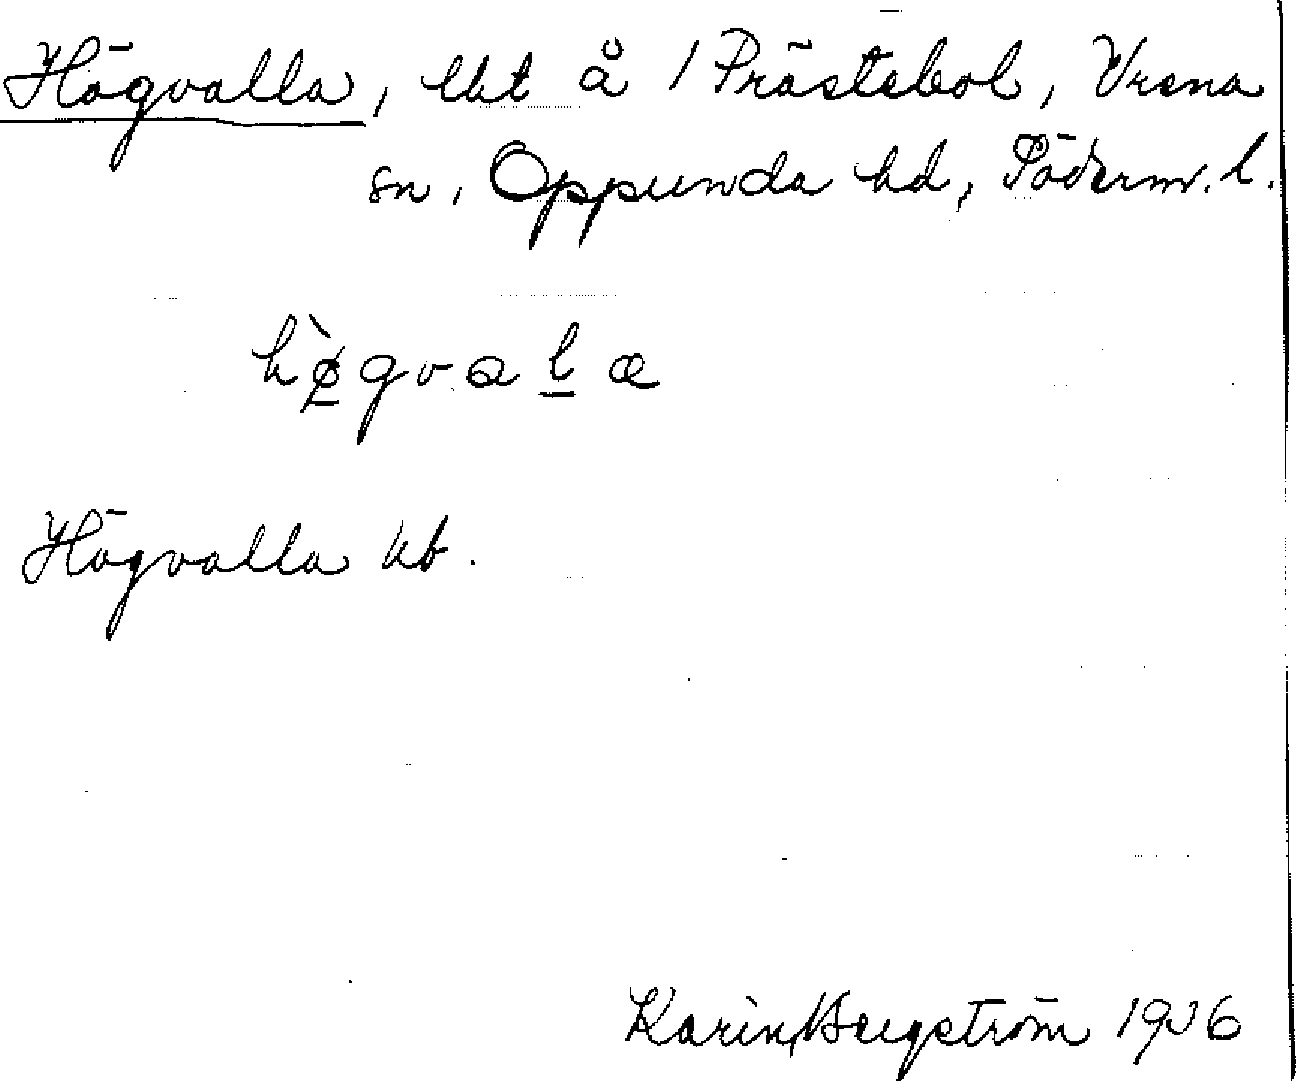 Högvalla, lht å 1 Prästebol, Vrena
sn, Oppunda hd, Söderm. l.
hø̀gval̲a
Högvalla kb.
Karin Bergström 1936